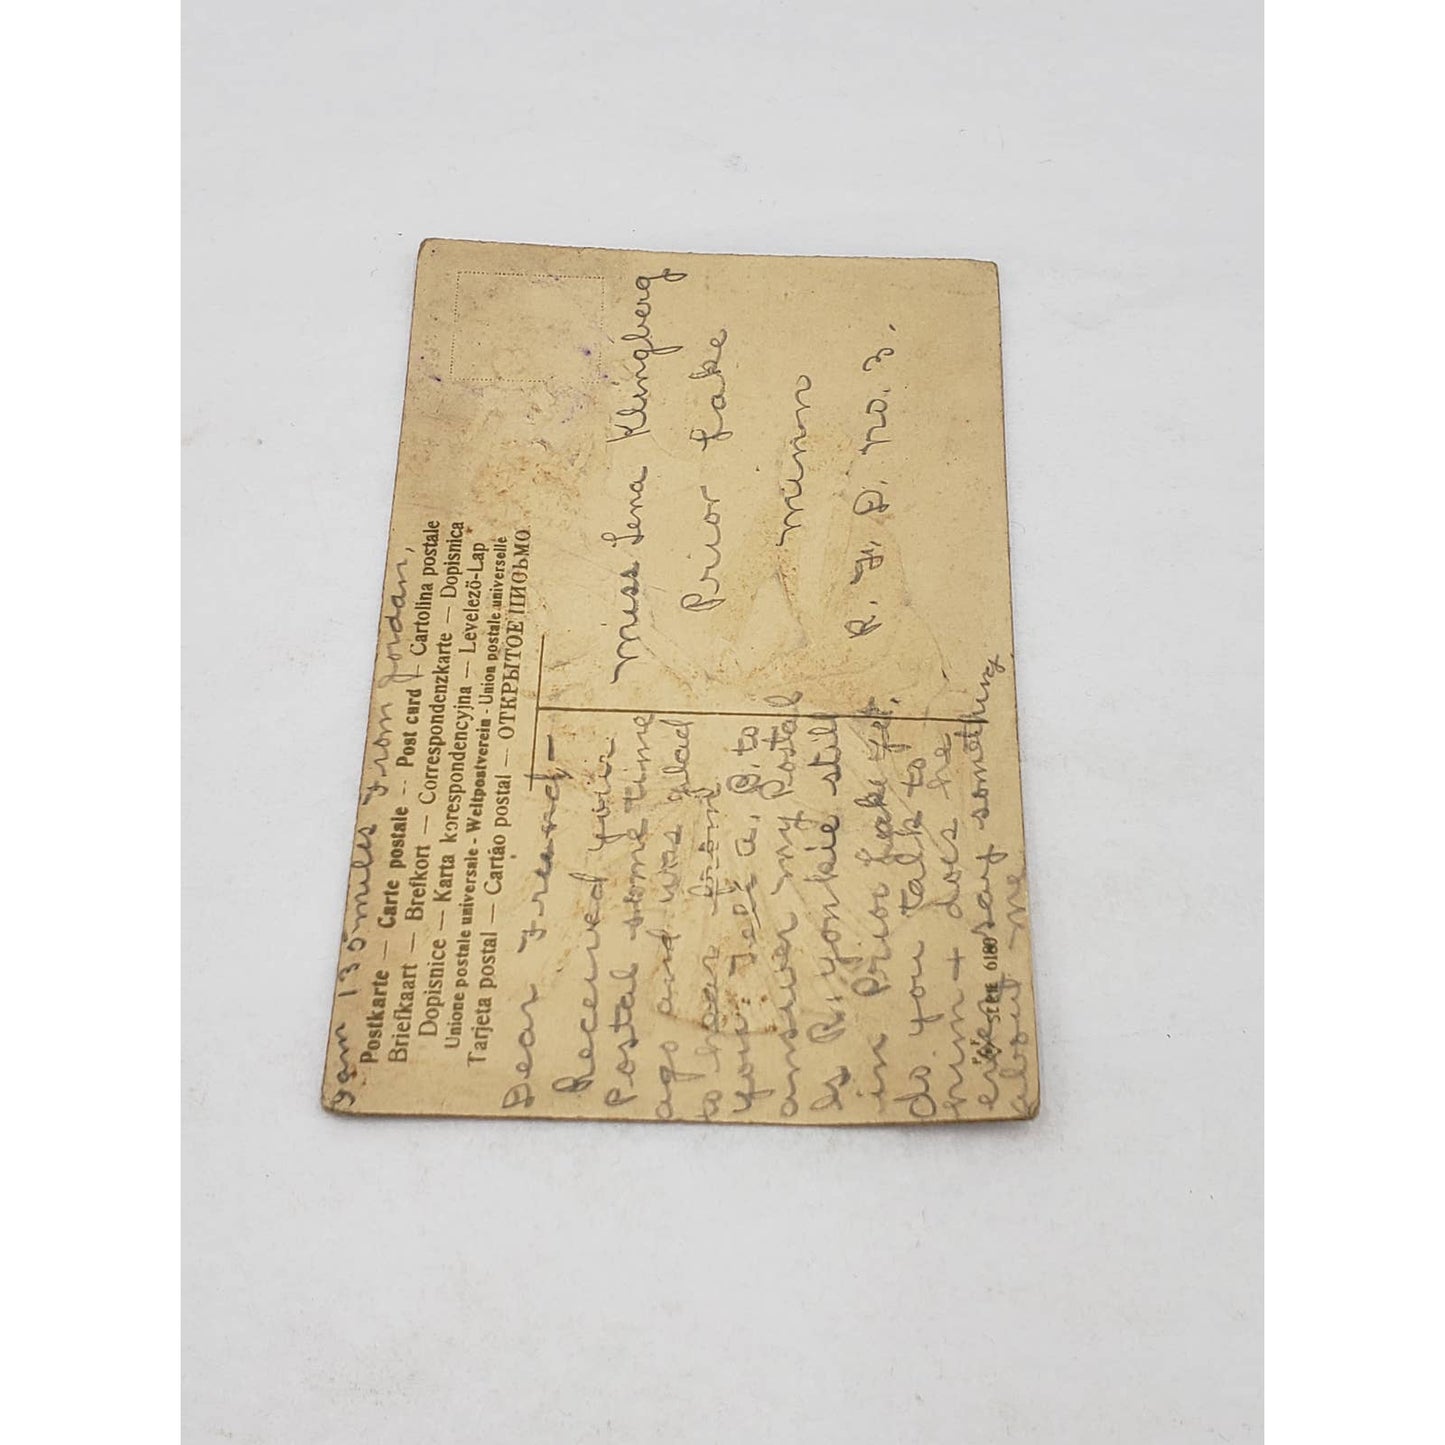 I am 135 miles from Jordan,
Postkarte — Carte postale -- Post card — Cartolina postale
Briefkaart — Brefkort — Correspondenzkarte — Dopisnica
Dopisnice — Karta korespondencyjna — Levelező-Lap
Unione postale universale - Weltpostverein - Union postale universelle
Tarjeta postal — Cartão postal — ОТКРЫТОЕ ПИСЬМО.
Dear Friend -
Received your
Postal some time
ago and was glad
to hear from
you. Tell a. B. to
answer my Postal
Is R. yonkie still
in Prior Lake yet,
do you talk to
him + does he
ever say something
about me
Miss Lena Klingberg
Prior Lake
Minn
R. F. D. No. 3.
SERIE 6180